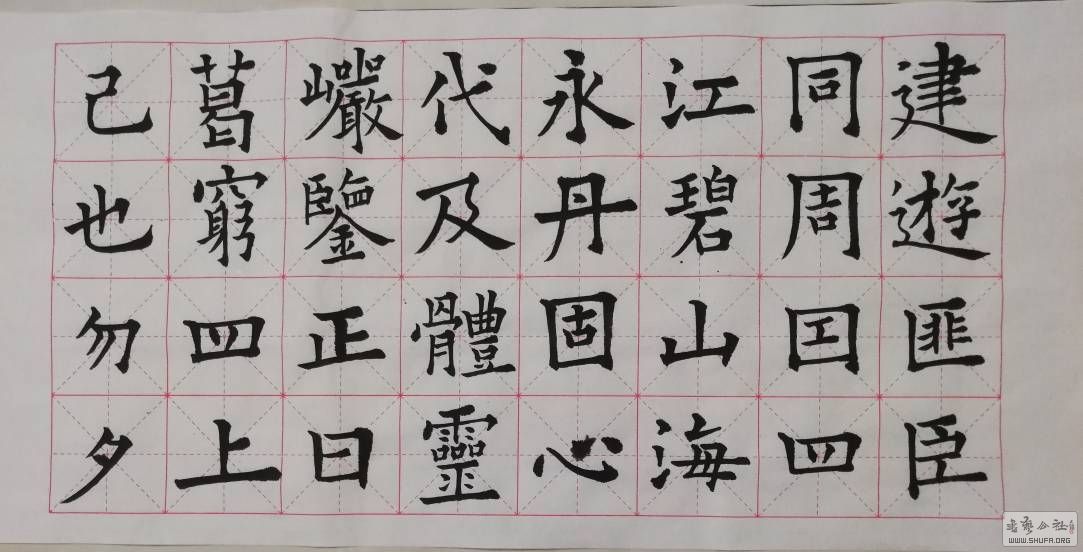 建遊匪臣
同周四
江碧山海
永丹固心
代及體靈
巗鑒正曰
葛窮四上
己也勿夕
书艺公社
WWW.SHUFA.ORG